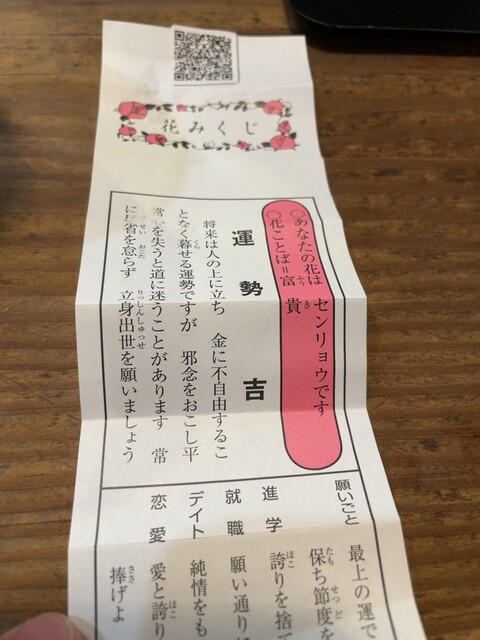 花みくじ
○あなたの花は センリョウです
○花ことば＝富貴
運勢 吉
将来は人の上に立ち 金に不自由するこ
となく暮せる運勢ですが 邪念をおこし平
常心を失うと道に迷うことがあります 常
に反省を怠らず 立身出世を願いましょう
願いごと 最上の運で
保ち節度を
進学 誇りを捨て
就職 願い通りに
デイト 純情をも
恋愛 愛と誇り
捧げよ